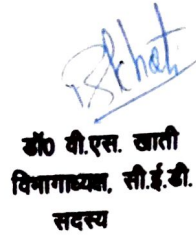 डॉ0 वी.एस. खाती
विभागाध्यक्ष, सी.ई.डी.
सदस्य